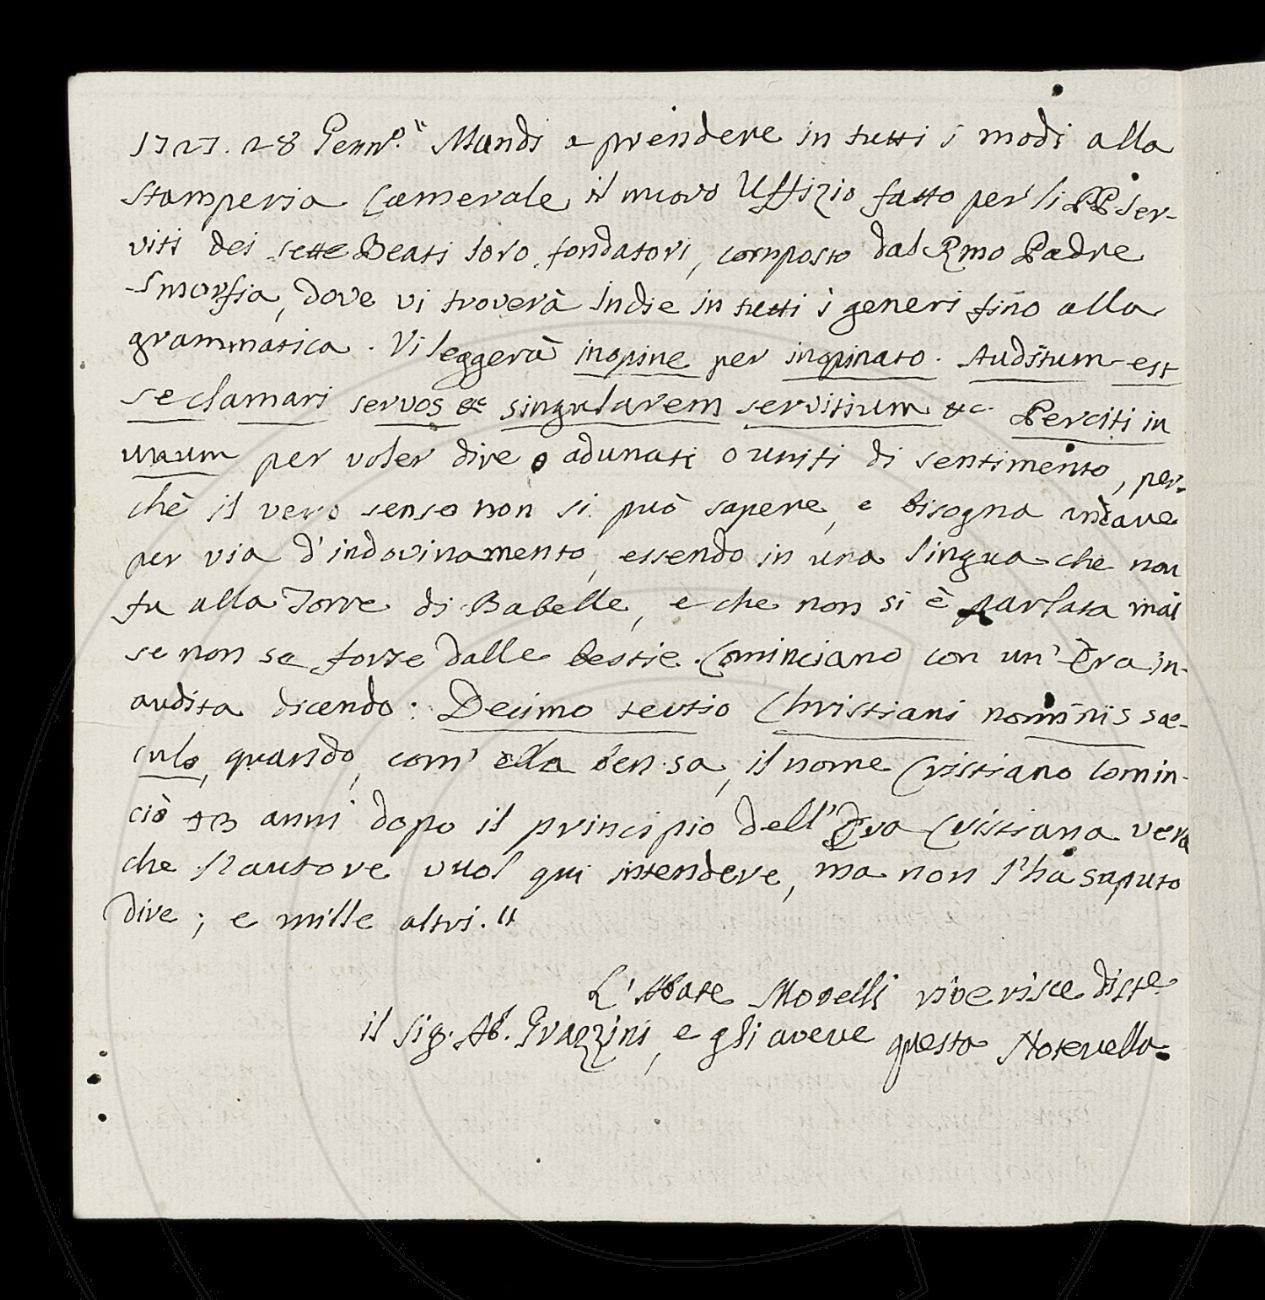 1727. 28 Genn.º " Mandi a prendere in tutti i modi alla
Stamperia Camerale il nuovo Uffizio fatto per li PP Ser-
viti dei sette Beati loro fondatori, composto dal Rmo Padre
Smorfia, dove vi troverà Indie in tutti i generi fino alla
grammatica. Vi leggerà inopine per inopinato. Auditum est
se clamari servos &c singularem servitium &c. Perciti in
unum per voler dire o adunati o uniti di sentimento, per-
chè il vero senso non si può sapere, e bisogna andare
per via d'indovinamento, essendo in una lingua che non
fu alla Torre di Babelle, e che non si è parlata mai
se non se forse dalle bestie. Cominciano con un' Era in-
audita dicendo: Decimo tertio Christiani nominis sae-
culo, quando, com' ella ben sa, il nome Cristiano comin-
ciò 43 anni dopo il principio dell' Era Cristiana vera
che l'autore vuol qui intendere, ma non l'ha saputo
dire; e mille altri."
L'Abate Morelli riverisce disste
il Sig. Ab. Grazzini, e gli avere questa Noterella.